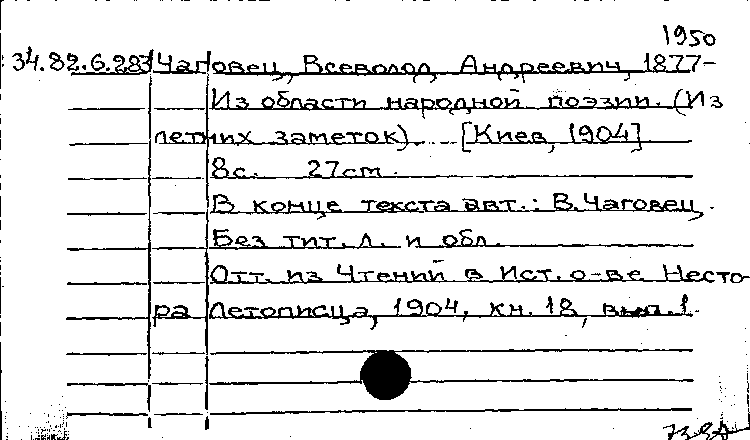 1950
34.82.6.283 Чаговец, Всеволод Андреевич, 1877-
Из области народной поэзии. (Из
летних заметок). [Киев, 1904]
8с. 27см.
В конце текста авт.: В. Чаговец.
Без тит. л. и обл.
Отт. из Чтений в Ист. о-ве Несто-
ра Летописца, 1904, кн. 18, вып. 1.